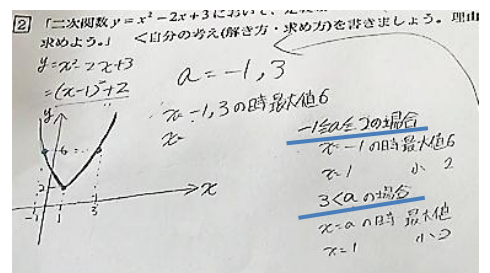 2 「二次関数 y = x² − 2x + 3 において、
求めよう。」 <自分の考え(解き方・求め方)を書きましょう。理由
y=x²-2x+3
=(x-1)²+2
a = -1, 3
x=-1,3の時最大値6
x=
y
6
2
-1
1
3
x
-1≦a≦2の場合
x=-1の時最大値6
x=1 小 2
3<aの場合
x=aの時 最大値
x=1 小2